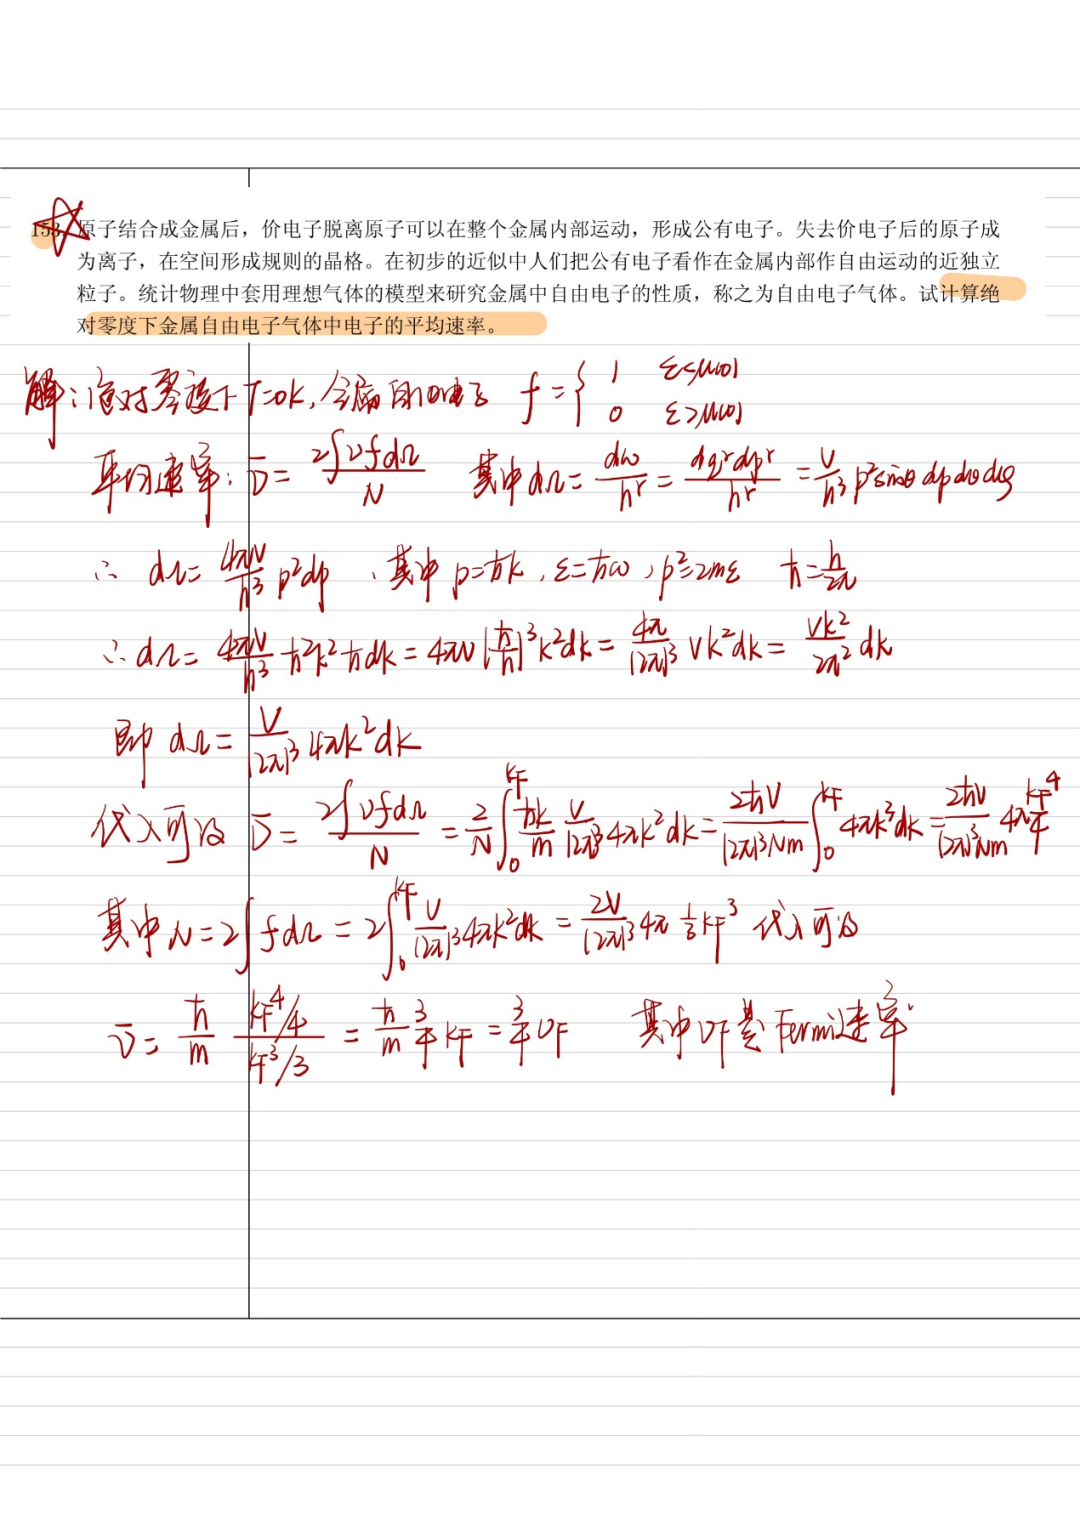 153 原子结合成金属后，价电子脱离原子可以在整个金属内部运动，形成公有电子。失去价电子后的原子成
为离子，在空间形成规则的晶格。在初步的近似中人们把公有电子看作在金属内部作自由运动的近独立
粒子。统计物理中套用理想气体的模型来研究金属中自由电子的性质，称之为自由电子气体。试计算绝
对零度下金属自由电子气体中电子的平均速率。
解：绝对零度下 T=0K, 金属自由电子 f = { 1 ε≤μ(0) 0 ε>μ(0)
平均速率：ῡ = 2∫υfdΩ / N 其中 dΩ = dω/h^r = dq^r dp^r / h^r = V/h³ p² sinθ dp dθ dφ
∴ dΩ = 4πV/h³ p²dp , 其中 p=ħk , ε=ħω , p²=2mε ħ = h/2π
∴ dΩ = 4πV/h³ ħ²k² ħdk = 4πV (ħ/h)³ k²dk = 4π/(2π)³ Vk²dk = Vk²/2π² dk
即 dΩ = V/(2π)³ 4πk²dk
代入可得 ῡ = 2∫υfdΩ / N = 2/N ∫₀^{kF} ħk/m V/(2π)³ 4πk²dk = 2ħV/(2π)³Nm ∫₀^{kF} 4πk³dk = 2ħV/(2π)³Nm 4π kF⁴/4
其中 N = 2∫fdΩ = 2∫₀^{kF} V/(2π)³ 4πk²dk = 2V/(2π)³ 4π 1/3 kF³ 代入可得
ῡ = ħ/m (kF⁴/4)/(kF³/3) = ħ/m 3/4 kF = 3/4 υF 其中 υF 是 Fermi速率.